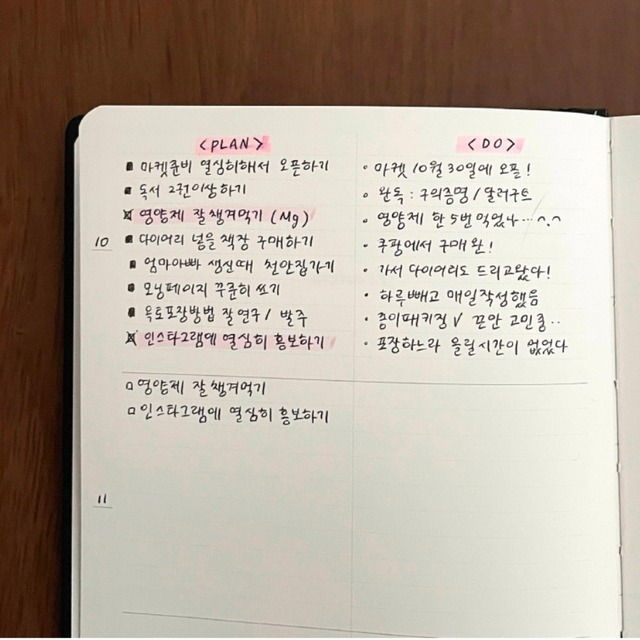 <PLAN>
마켓준비 열심히해서 오픈하기
독서 2권이상하기
영양제 잘챙겨먹기 (Mg)
다이어리 넣을 책장 구매하기
엄마아빠 생신때 천안집가기
모닝페이지 꾸준히 쓰기
욕토포장방법 잘연구 / 발주
인스타그램에 열심히 홍보하기
<DO>
· 마켓 10월 30일에 오픈!
· 완독 : 구의증명 / 달러구트
· 영양제 한 5번 먹었나…^.^
· 쿠팡에서 구매완!
· 가서 다이어리도 드리고왔다!
· 하루빼고 매일작성했음
· 종이패키징 V 끈안 고민중..
· 포장하느라 올릴시간이 없었다
10
□ 영양제 잘챙겨먹기
□ 인스타그램에 열심히 홍보하기
11